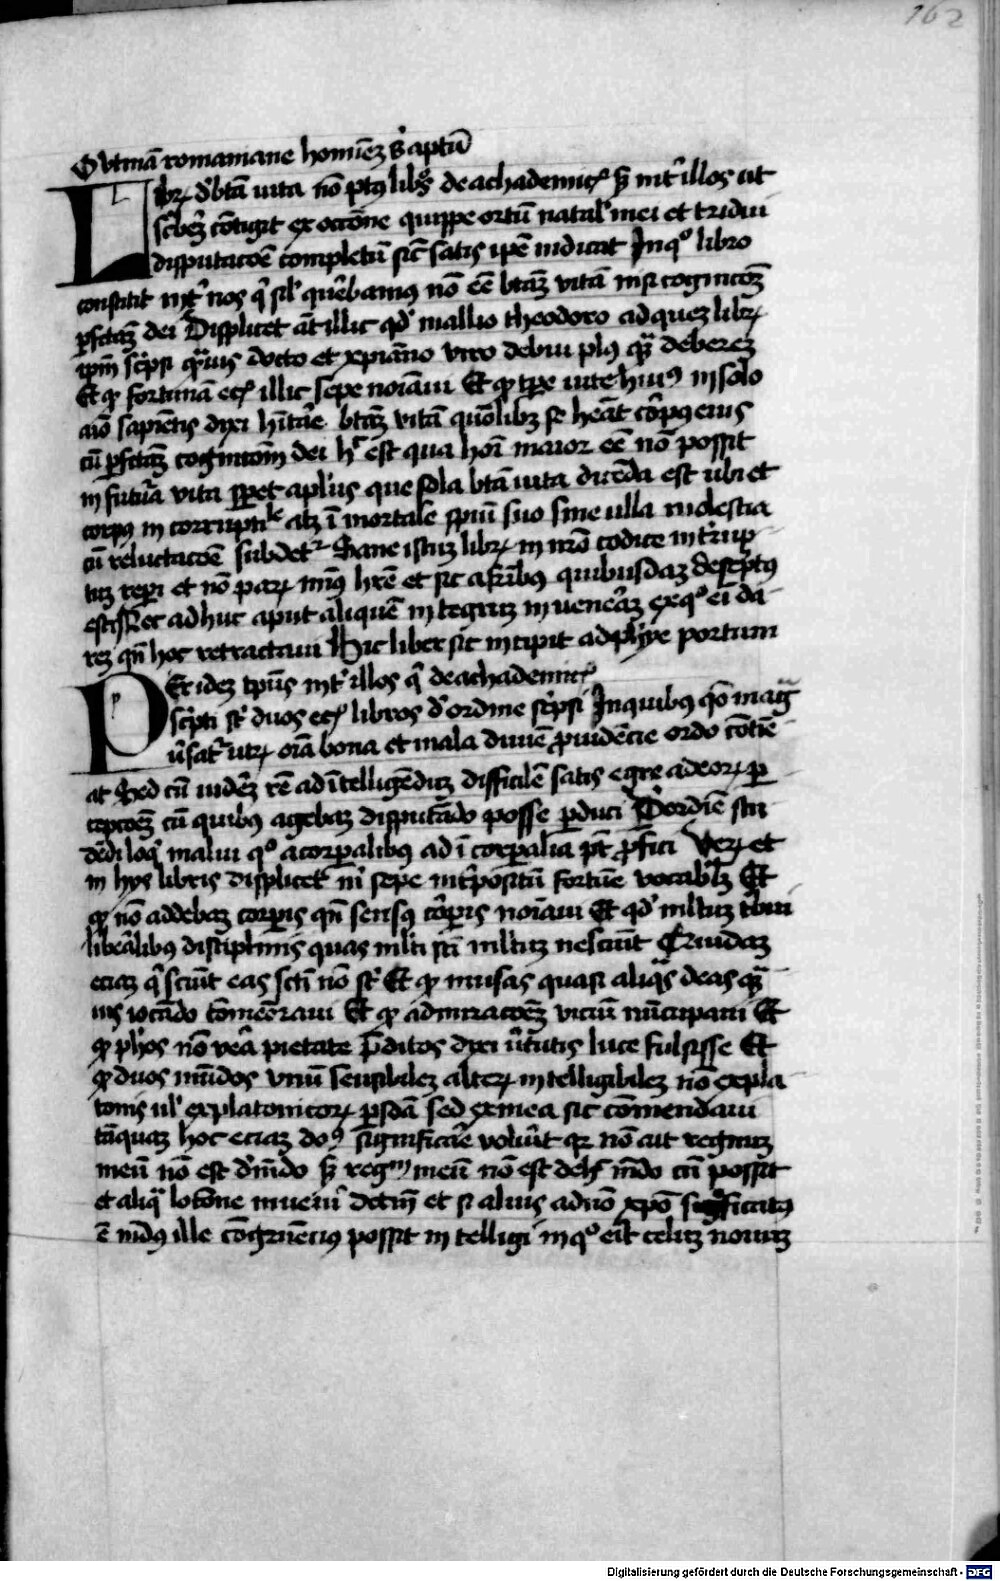 162
Outinā romamane homiēz s̄ aptū
Librꝝ d' btā uita nō pꝰ libꝰ de achademicꝭ sꝫ int' illos ut
sc'berē cōtigit ex occōne quippe ortū natal' mei et tridui
disputacōe completū sic' satis ip̄e indicat Inq° libro
constitit int' nos q' sil' querebamꝰ nō eē btāz vitā nisi cognicōz
ꝑfctāz dei Displicet āt illic qd' mallio theodoro ad quez librꝝ
ip̄m sc'psi qᵃuis docto et xp̄iāno viro debui plꝰ qᵃ deberez
Et qꝫ fortunā ecꝭ illic sepe noīaui Et qꝫ tp̄e uite huiꝰ in solo
aīo sapiētis dixi hītāre btāz vitā quōlibꝫ se hēat corpꝰ eius
cū ꝑfctāz cognitōm dei hᶜ est qua hoī maior eē nō possit
in futura vita speret apl'us que sola btā uita dicēda est ubi et
corpꝰ in corruptilᵉ atqꝫ īmortale spiū suo sine ulla molestia
cū reluctacōe subdet' Sane istuz librꝝ in nr̄o codice int'rup-
tuz reperi et nō parꝝ minꝰ hr̄e et sic a fr̄ibꝰ quibusdaz descptꝰ
est Nec ad huc aput aliquē in tegruz in uenerāz ex q° eū da-
rez qn̄ hoc retractaui Hic liber sic in cipit ad phȳe portum
Per idez tp̄us int' illos q' de achademicꝭ
sc'pti st' duos ecꝭ libros d' ordine sc'psi Inquibus qō magᵃ
ūsat' utrꝝ oīa bona et mala diuīe ꝓuidēcie ordo cōtīe-
at Sed cū uidērz rē ad ītelligēduz difficilē satis egre ad eorꝝ ꝑ-
cepcoēz cū quibꝰ agebaz disputādo posse ꝑduci De ordīe stu
dēdi loq' malui q° a corꝑalibus ad ī corꝑalia pt̄ ꝓfici Verꝝ et
in hys libris displicet m' sepe int'positū fortūe vocabl'z Et
qꝫ nō addebaz corpis qn̄ sensꝰ corpis noīaui Et qd' ml'tuz t'bui
libēalibus disciplinis quas ml'ti sc'ti ml'tuz nesciūt Quidaz
eciaz q' sciūt eas sc'ti nō st' Et qꝫ musas quasi aliqᵃs deas qᵃ
uis iocādo cōmēoraui Et qꝫ admiracōez viciū nūcupaui Et
qꝫ ph'os nō vera pietate p̄ditos dixi ūtutis luce fulsisse Et
qꝫ duos mūdos vnū sensibilez alterꝝ intelligibilez nō ex pla-
tonis ul' ex platonicorꝝ ꝑsōa sed ex mea sic cōmendaui
tāquaz hoc eciaz doꝰ significāre voluīt qꝛ nō ait regnuz
meū nō est d' mūdo sꝫ regᵐ meū nō est de hᶜ mūdo cū possit
et aliqᵃ locōne inueniri dictū et si alius ad nō xp̄o significatꝰ
ē mūdꝰ ille cōgruēciꝰ possit in telligi in q° erit celuz nouuz
Digitalisierung gefördert durch die Deutsche Forschungsgemeinschaft - DFG